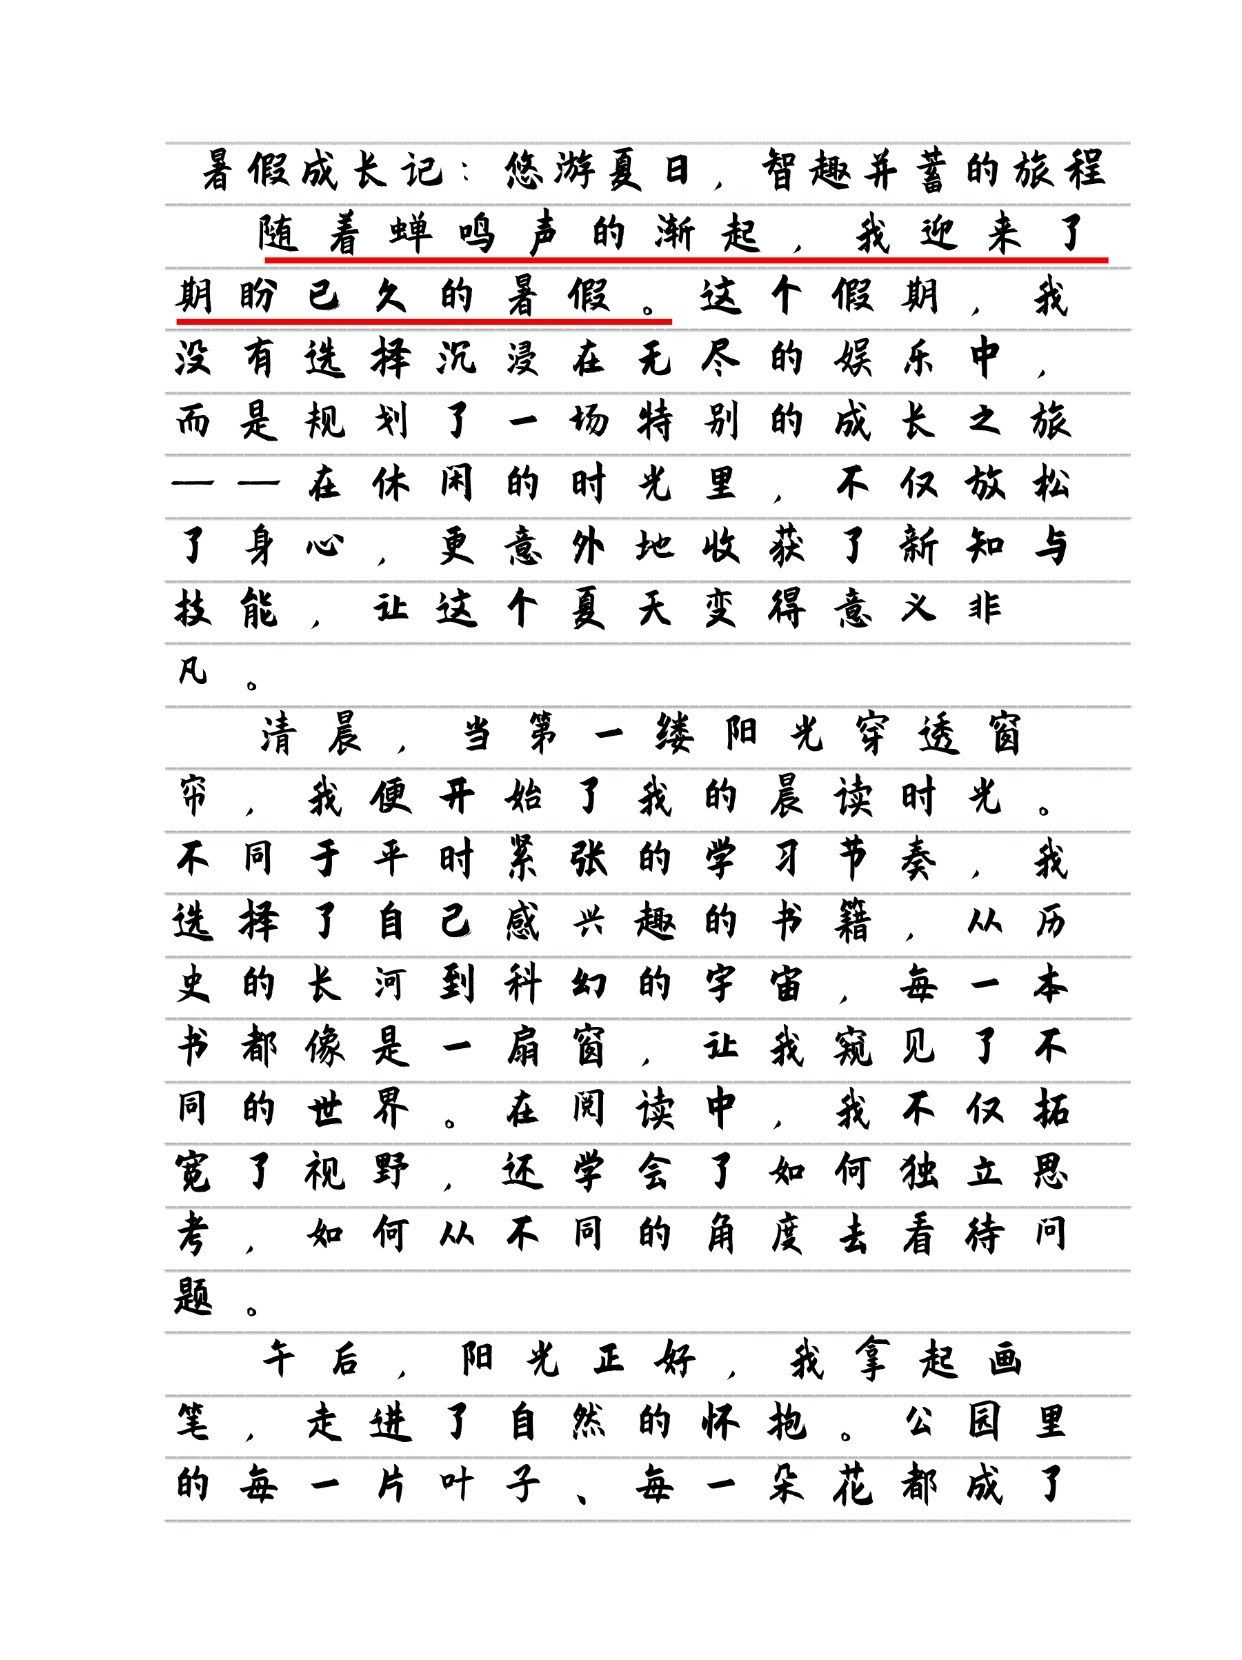 暑假成长记：悠游夏日，智趣并蓄的旅程
随着蝉鸣声的渐起，我迎来了
期盼已久的暑假。这个假期，我
没有选择沉浸在无尽的娱乐中，
而是规划了一场特别的成长之旅
——在休闲的时光里，不仅放松
了身心，更意外地收获了新知与
技能，让这个夏天变得意义非
凡。
清晨，当第一缕阳光穿透窗
帘，我便开始了我的晨读时光。
不同于平时紧张的学习节奏，我
选择了自己感兴趣的书籍，从历
史的长河到科幻的宇宙，每一本
书都像是一扇窗，让我窥见了不
同的世界。在阅读中，我不仅拓
宽了视野，还学会了如何独立思
考，如何从不同的角度去看待问
题。
午后，阳光正好，我拿起画
笔，走进了自然的怀抱。公园里
的每一片叶子、每一朵花都成了